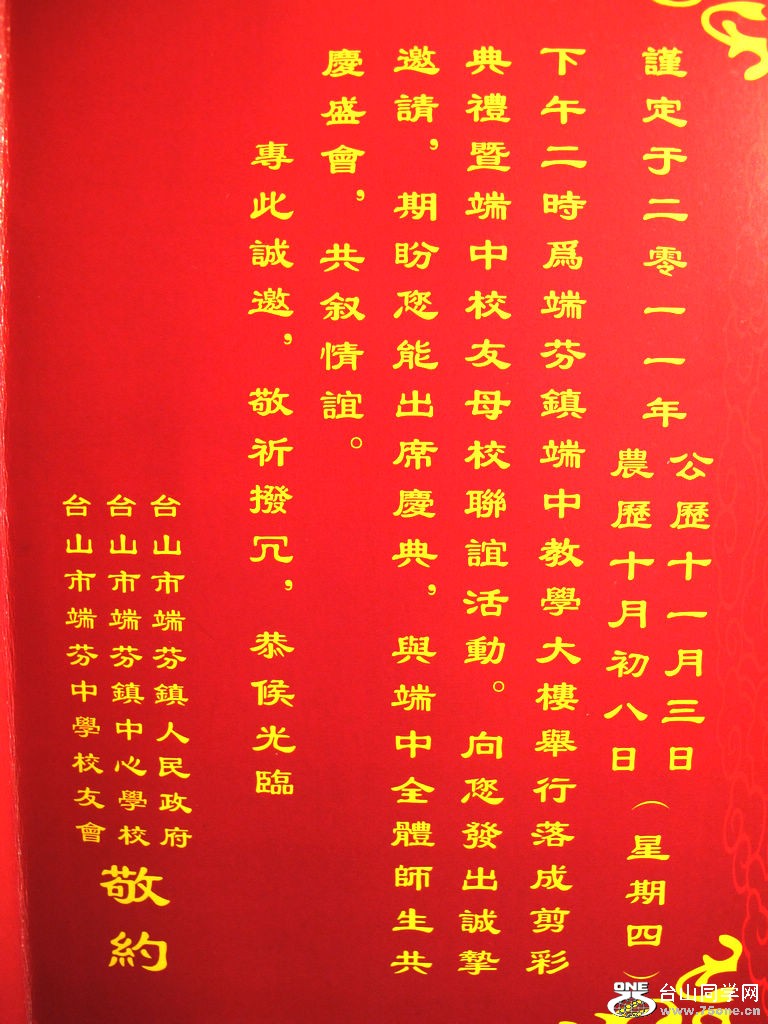 謹定于二零一一年
公歷十一月三日
農歷十月初八日
（星期四）
下午二時爲端芬鎮端中教學大樓舉行落成剪彩
典禮暨端中校友母校聯誼活動。向您發出誠摯
邀請，期盼您能出席慶典，與端中全體師生共
慶盛會，共叙情誼。
專此誠邀，敬祈撥冗，恭候光臨
台山市端芬鎮人民政府
台山市端芬鎮中心學校
台山市端芬中學校友會
敬約
ONE
台山同学网
www.75one.cn